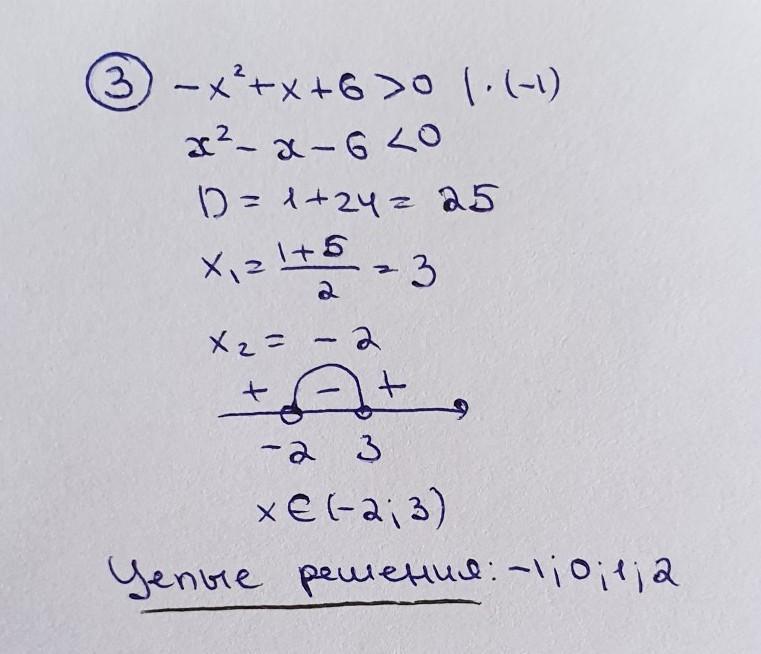 ③ -x²+x+6>0 |·(-1)
x²-x-6<0
D=1+24=25
x₁=(1+5)/2=3
x₂=-2
+ - +
-2 3
x∈(-2;3)
Целые решения: -1;0;1;2